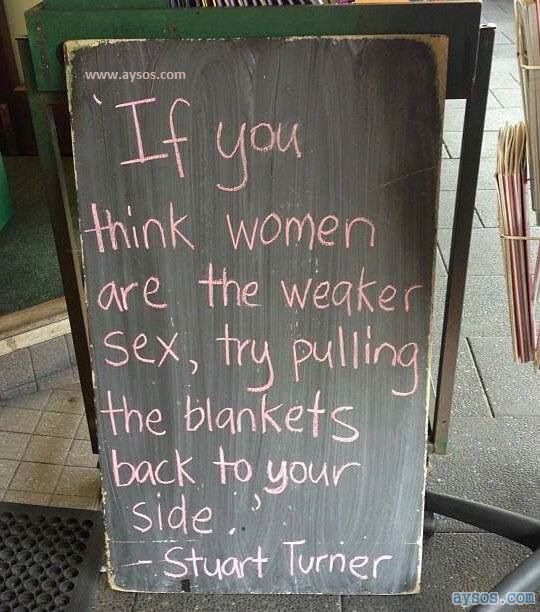 www.aysos.com
'If you
think women
are the weaker
sex, try pulling
the blankets
back to your
side.'
- Stuart Turner
aysos.com